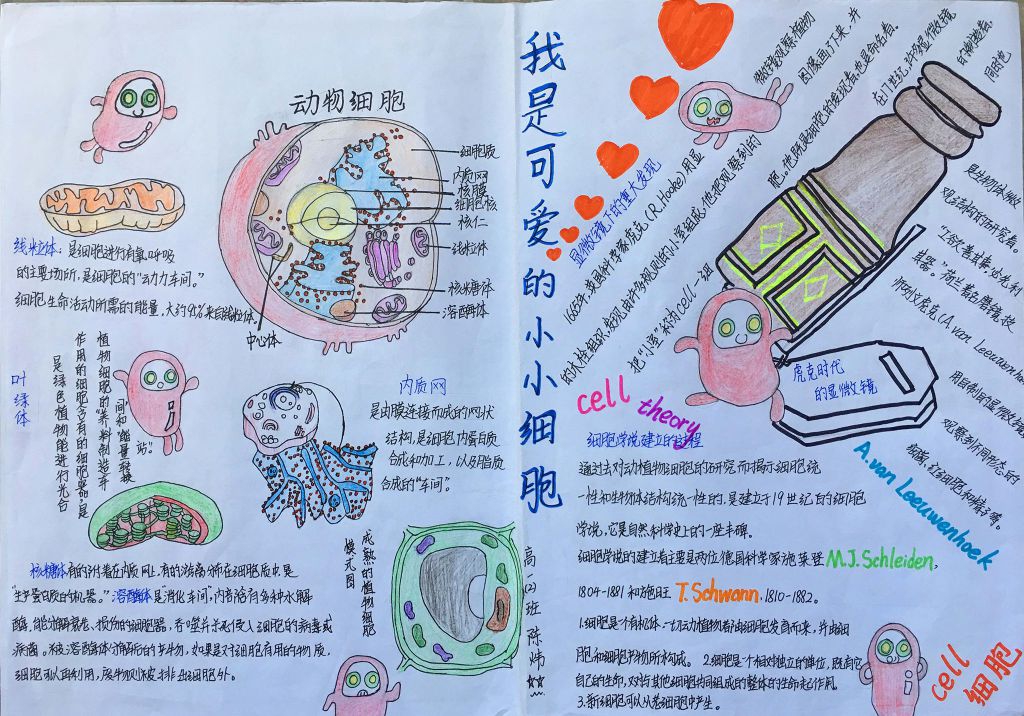 动物细胞
细胞质
内质网
核膜
细胞核
核仁
线粒体
核糖体
溶酶体
中心体
线粒体：是细胞进行有氧呼吸
的主要场所，是细胞的“动力车间。”
细胞生命活动所需的能量，大约95%来自线粒体
叶绿体
是绿色植物能进行光合
作用的细胞含有的细胞器，是
植物细胞的“养料制造车
间”和“能量转换
站”。
内质网
是由膜连接而成的网状
结构，是细胞内蛋白质
合成和加工，以及脂质
合成的“车间”。
成熟的植物细胞
模式图
核糖体有的附着在内质网上，有的游离分布在细胞质中，是
“生产蛋白质的机器。”溶酶体是“消化车间，内部含有多种水解
酶，能分解衰老、损伤的细胞器，吞噬并杀死侵入细胞的病毒或
病菌。被溶酶体分解后的产物，如果是对细胞有用的物质，
细胞可以再利用，废物则被排出细胞外。
我是可爱的小小细胞
高(2)班 陈炜
显微镜下的重大发现
1665年，英国科学家虎克（R.Hooke）用显
微镜观察植物
的木栓组织，发现由许多规则的小室组成，他把观察到的
图像画了下来，并
把“小室”称为cell—细
胞。他既是细胞的发现者，也是命名者。
在17世纪，许多显微镜
的制造者，
同时也
是生物的显微
观结构的研究者。
“工欲善其事，必先利
其器。”荷兰著名磨镜技
师列文虎克（A.van Leeuwenhoek
用自制的显微镜
观察到不同形态的
细菌、红细胞和精子等。
虎克时代
的显微镜
A.van Leeuwenhoek
cell theory
细胞学说建立的过程
通过去对动植物细胞的研究而揭示细胞统
一性和生物体结构统一性的，是建立于19世纪的细胞
学说，它是自然科学史上的一座丰碑。
细胞学说的建立者主要是两位德国科学家施莱登M.J.Schleiden，
1804-1881和施旺T.Schwann，1810-1882。
1.细胞是个有机体，一切动植物都由细胞发育而来，并由细
胞和细胞产物所构成。2.细胞是一个相对独立的单位，既有它
自己的生命，又对与其他细胞共同组成的整体的生命起作用。
3.新细胞可以从老细胞中产生。
cell
细胞